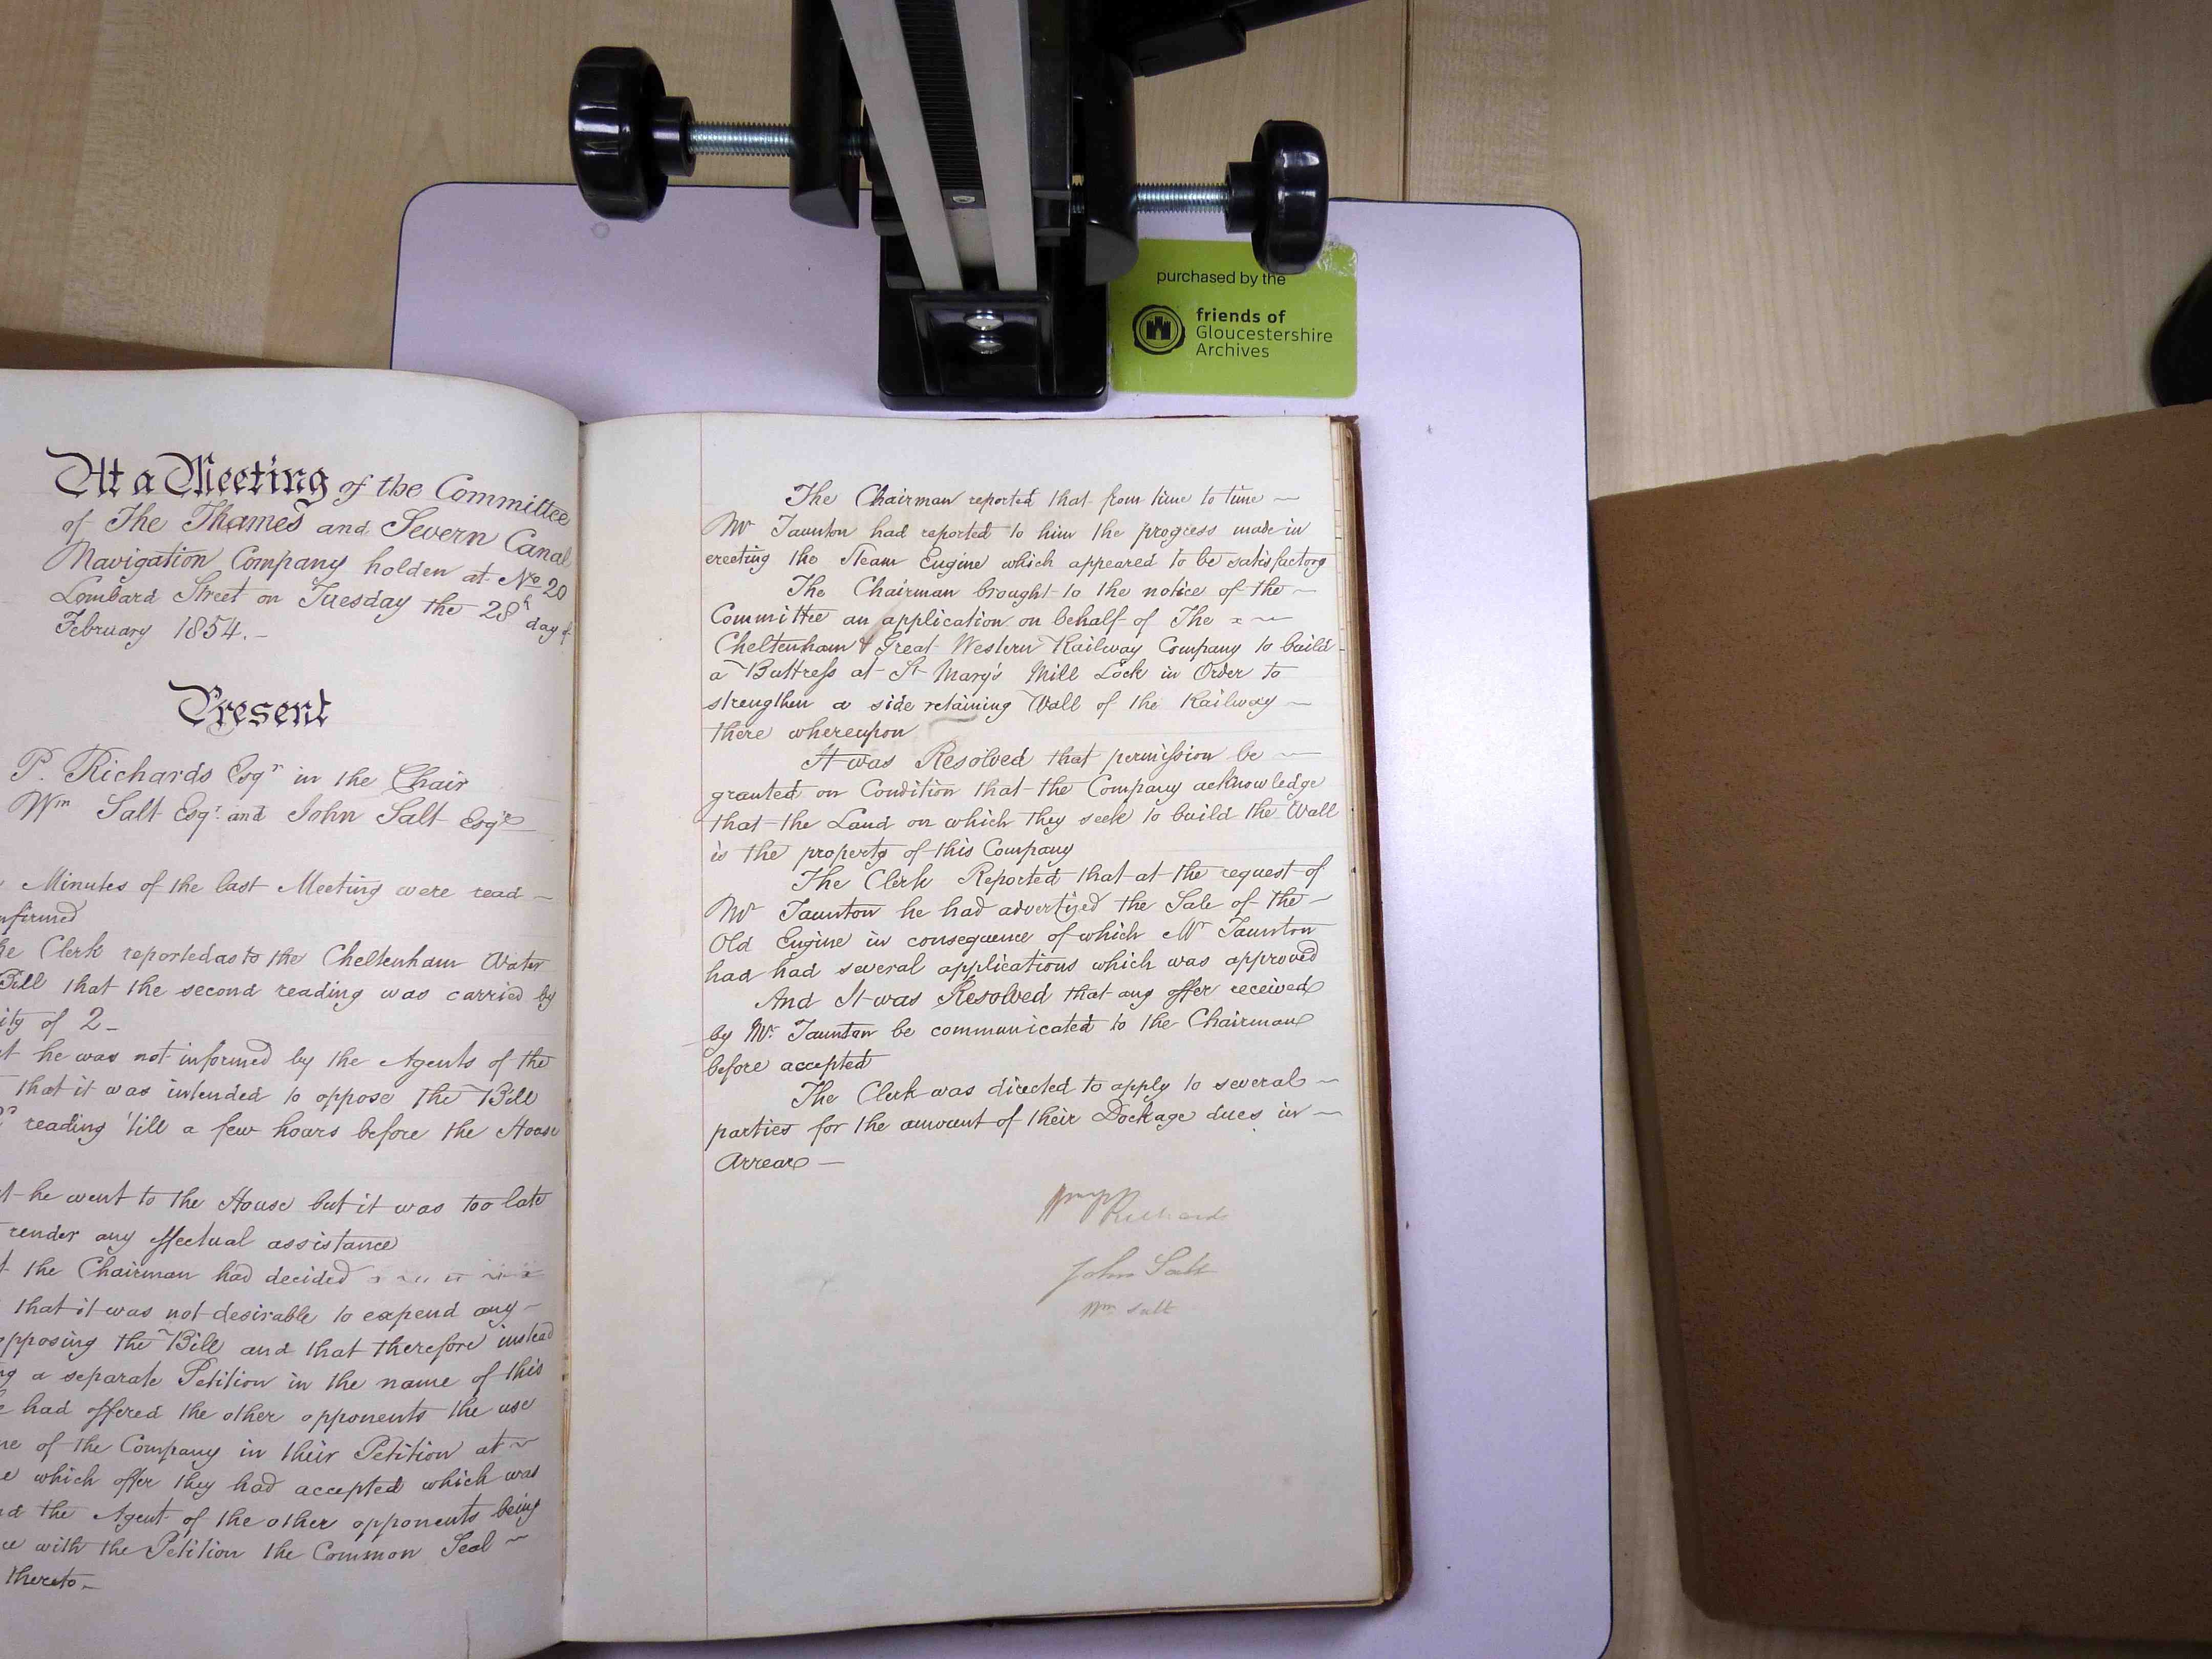 purchased by the
friends of
Gloucestershire
Archives
At a Meeting of the Committee
of The Thames and Severn Canal
Navigation Company holden at No 20
Lombard Street on Tuesday the 28th day of
February 1854.-
Present
P. Richards Esqr in the Chair
Wm Salt Esqr. and John Salt Esqre
Minutes of the last Meeting were read
nfirmed
he Clerk reported as to the Cheltenham Water
Bill that the second reading was carried by
ity of 2-
t he was not informed by the Agents of the
that it was intended to oppose the Bill
reading 'till a few hours before the House
t he went to the House but it was too late
render any effectual assistance
t the Chairman had decided
that it was not desirable to expend any
opposing the Bill and that therefore instead
ng a separate Petition in the name of this
e had offered the other opponents the use
me of the Company in their Petition at
e which offer they had accepted which was
nd the Agent of the other opponents being
ce with the Petition the Common Seal
thereto-
The Chairman reported that from time to time
Mr Taunton had reported to him the progress made in
erecting the Steam Engine which appeared to be satisfactory
The Chairman brought to the notice of the
Committee an application on behalf of The
Cheltenham & Great Western Railway Company to build
a Buttress at St Mary's Mill Lock in Order to
strengthen a side retaining Wall of the Railway
there whereupon
It was Resolved that permission be
granted on Condition that the Company acknowledge
that the Land on which they seek to build the Wall
is the property of this Company
The Clerk Reported that at the request of
Mr Taunton he had advertized the Sale of the
Old Engine in consequence of which Mr Taunton
had had several applications which was approved
And It was Resolved that any offer received
by Mr. Taunton be communicated to the Chairman
before accepted
The Clerk was directed to apply to several
parties for the amount of their Dockage dues in
Arrear-
Richards
John Salt
Wm Salt